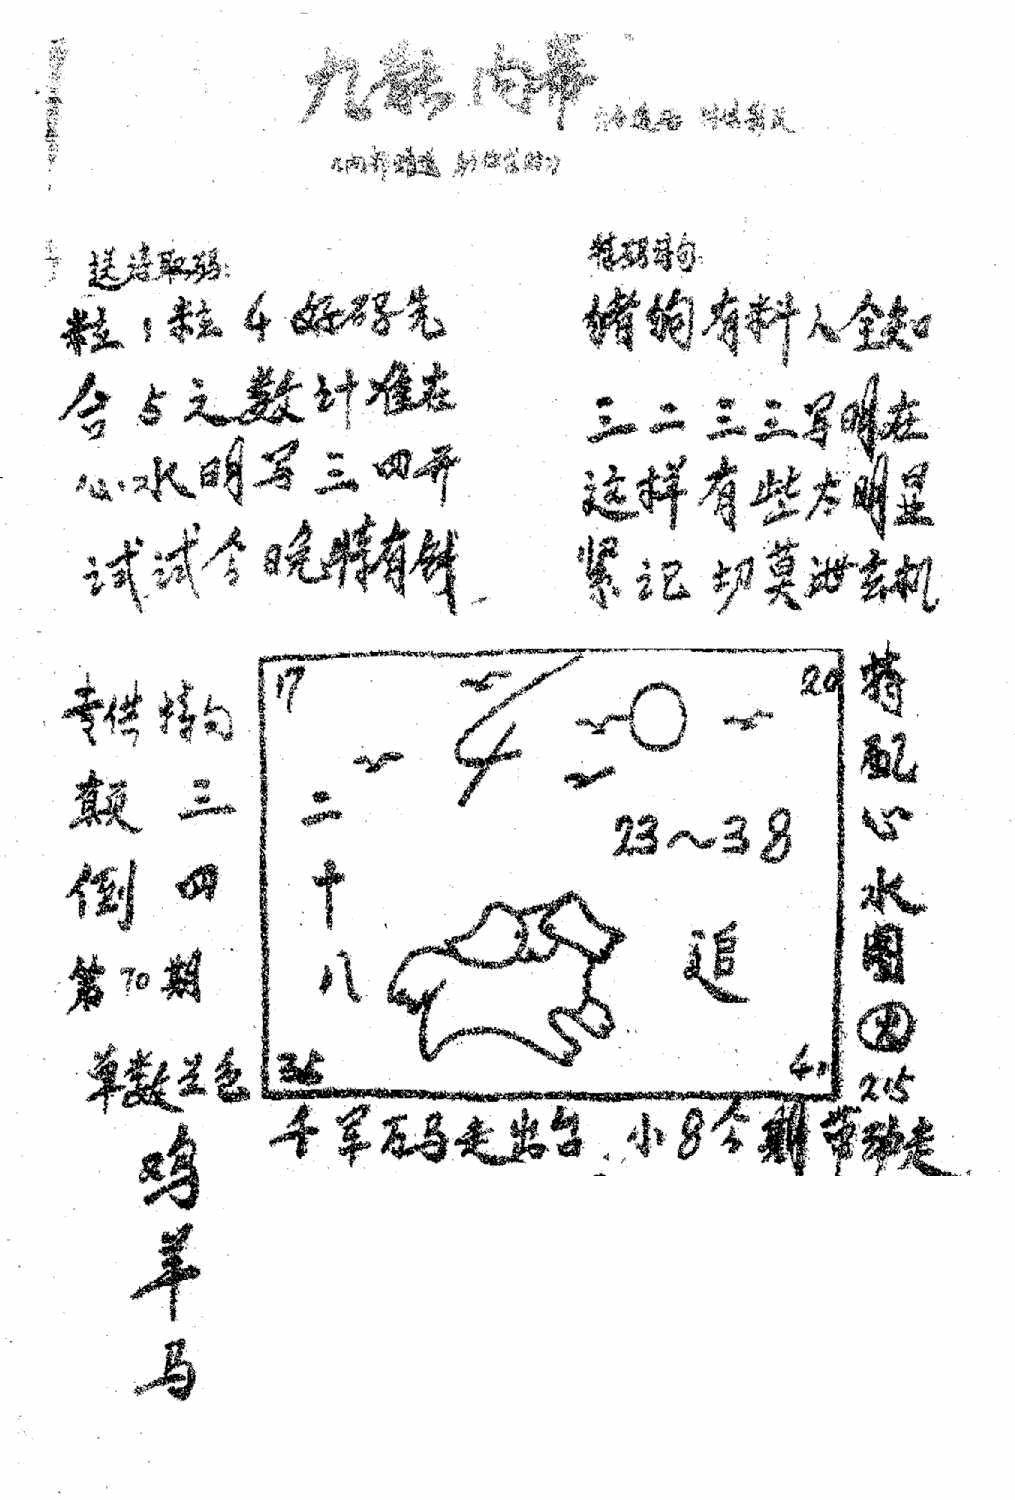 九龙内幕
送诗取码:
粒1粒4好码先
合5之数计准在
心水明写三四开
试试今晚特有钱
特码诗句
绪绚有料人全知
三二三三写明在
这样有些太明显
紧记切莫泄玄机
专供特句
颠倒三四
第70期
单数兰色
鸡
羊
马
17
20
二十八
23~38
追
36
41
特配心水图
25
千羊万马走出台
小8今期带动走